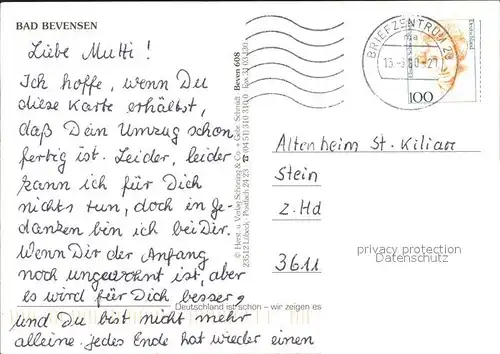 BAD BEVENSEN
Liebe Mutti!
Ich hoffe, wenn Du
diese Karte erhälst,
daß Dein Umzug schon
fertig ist. Leider, leider
kann ich für Dich
nichts tun, doch in Ge-
danken bin ich bei Dir.
Wenn Dir der Anfang
noch ungewohnt ist, aber
es wird für Dich besser,
und Du bist nicht mehr
alleine. Jedes Ende hat wieder einen
Deutschland ist schön – wir zeigen es
© Herst. u. Verlag Schöning & Co. + Gebr. Schmidt
23512 Lübeck · Postfach 24 23
Beven 608
BRIEFZENTRUM 20
ma
100
Deutschland
Altenheim St. Kilian
Stein
z. Hd
3611
privacy protection
Datenschutz